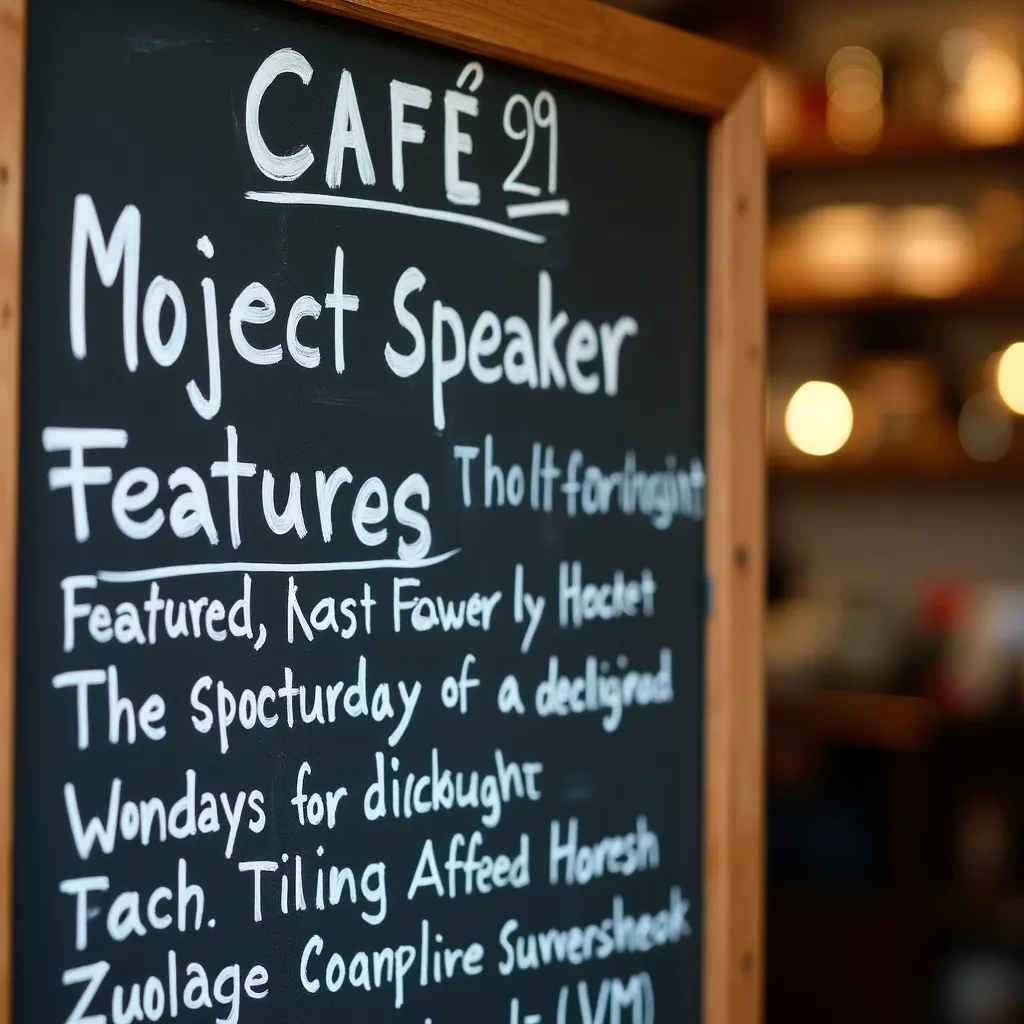 CAFÉ 29
Moject Speaker
Features Tholtforingint
Featured, Kast Fawer ly Hoctet
The spocturday of a decligrod
Wondays for dickbught
Tach. Tiling Affeed Horesh
Zuolage Coanplire Survversheok
(VM)